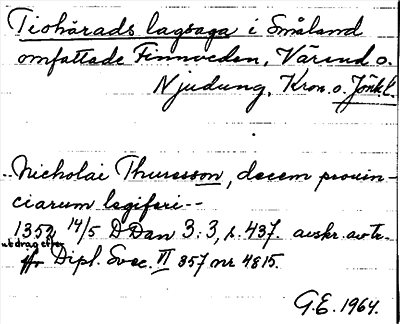 Tiohärads lagsaga i Småland
omfattade Finnveden, Värend o.
Njudung, Kron. o. Jönk. l.
..Nicholai Thuresson, decem provin-
ciarum legiferi--
1352 14/5 D Dan 3:3, s. 437. avskr. av tr.
utdrag efter
Dipl. Svec. VI 357 nr 4815.
G.E. 1964.